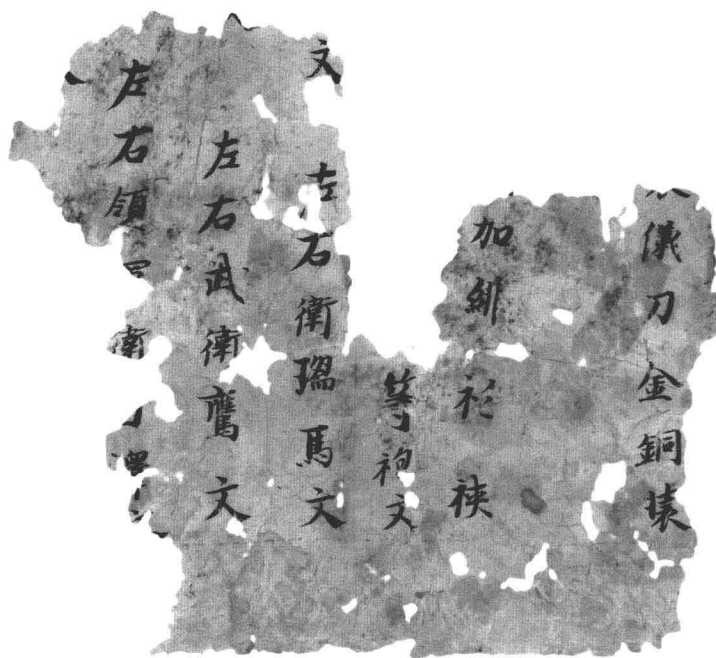 儀刀金銅裝
加緋衫裌
等袍文
文 左右衛瑞馬文
左右武衛鷹文
左右領軍衛